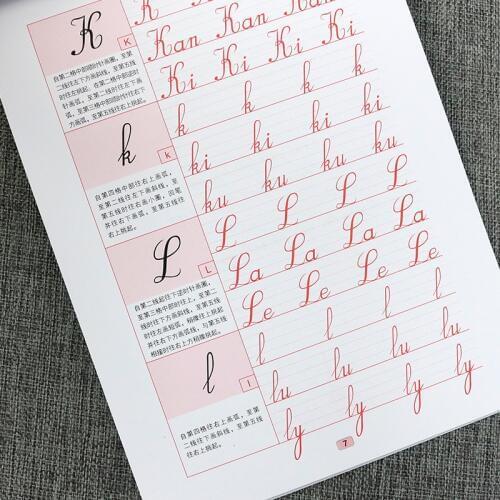 K
K
自第二格中部顺时针画圈，至第
二线往左下方画斜线，至第五线
时往左挑起。在第二格中部逆时
针画弧，至第二线时往左下画
弧，至第三格中部顺时针往右下
方画弧，至第五线往右上挑起。
K K K K
Kan Kan Kan Kan
Ki Ki Ki Ki
k
K
自第四格中部往右上画弧，至
第二线往左下画斜线，至
第五线时往右画小圈，回笔
并往右下画弧，至第五线往
右上挑起。
k k k k
ki ki ki ki
ku ku ku ku
L
L
自第二线起往下逆时针画圈，
至第三格中部时往上，至第二
线时往左下方画斜线，至第五
线时往左画短弧，稍微往上挑起
并往右下方画弧线，与第五线
相接时往右上方稍微挑起。
L L L L
La La La La
Le Le Le Le
l
l
自第四格往右上画弧，至第
二线往左下画斜线，至第五线
往右上挑起。
l l l l
lu lu lu lu
ly ly ly ly
7